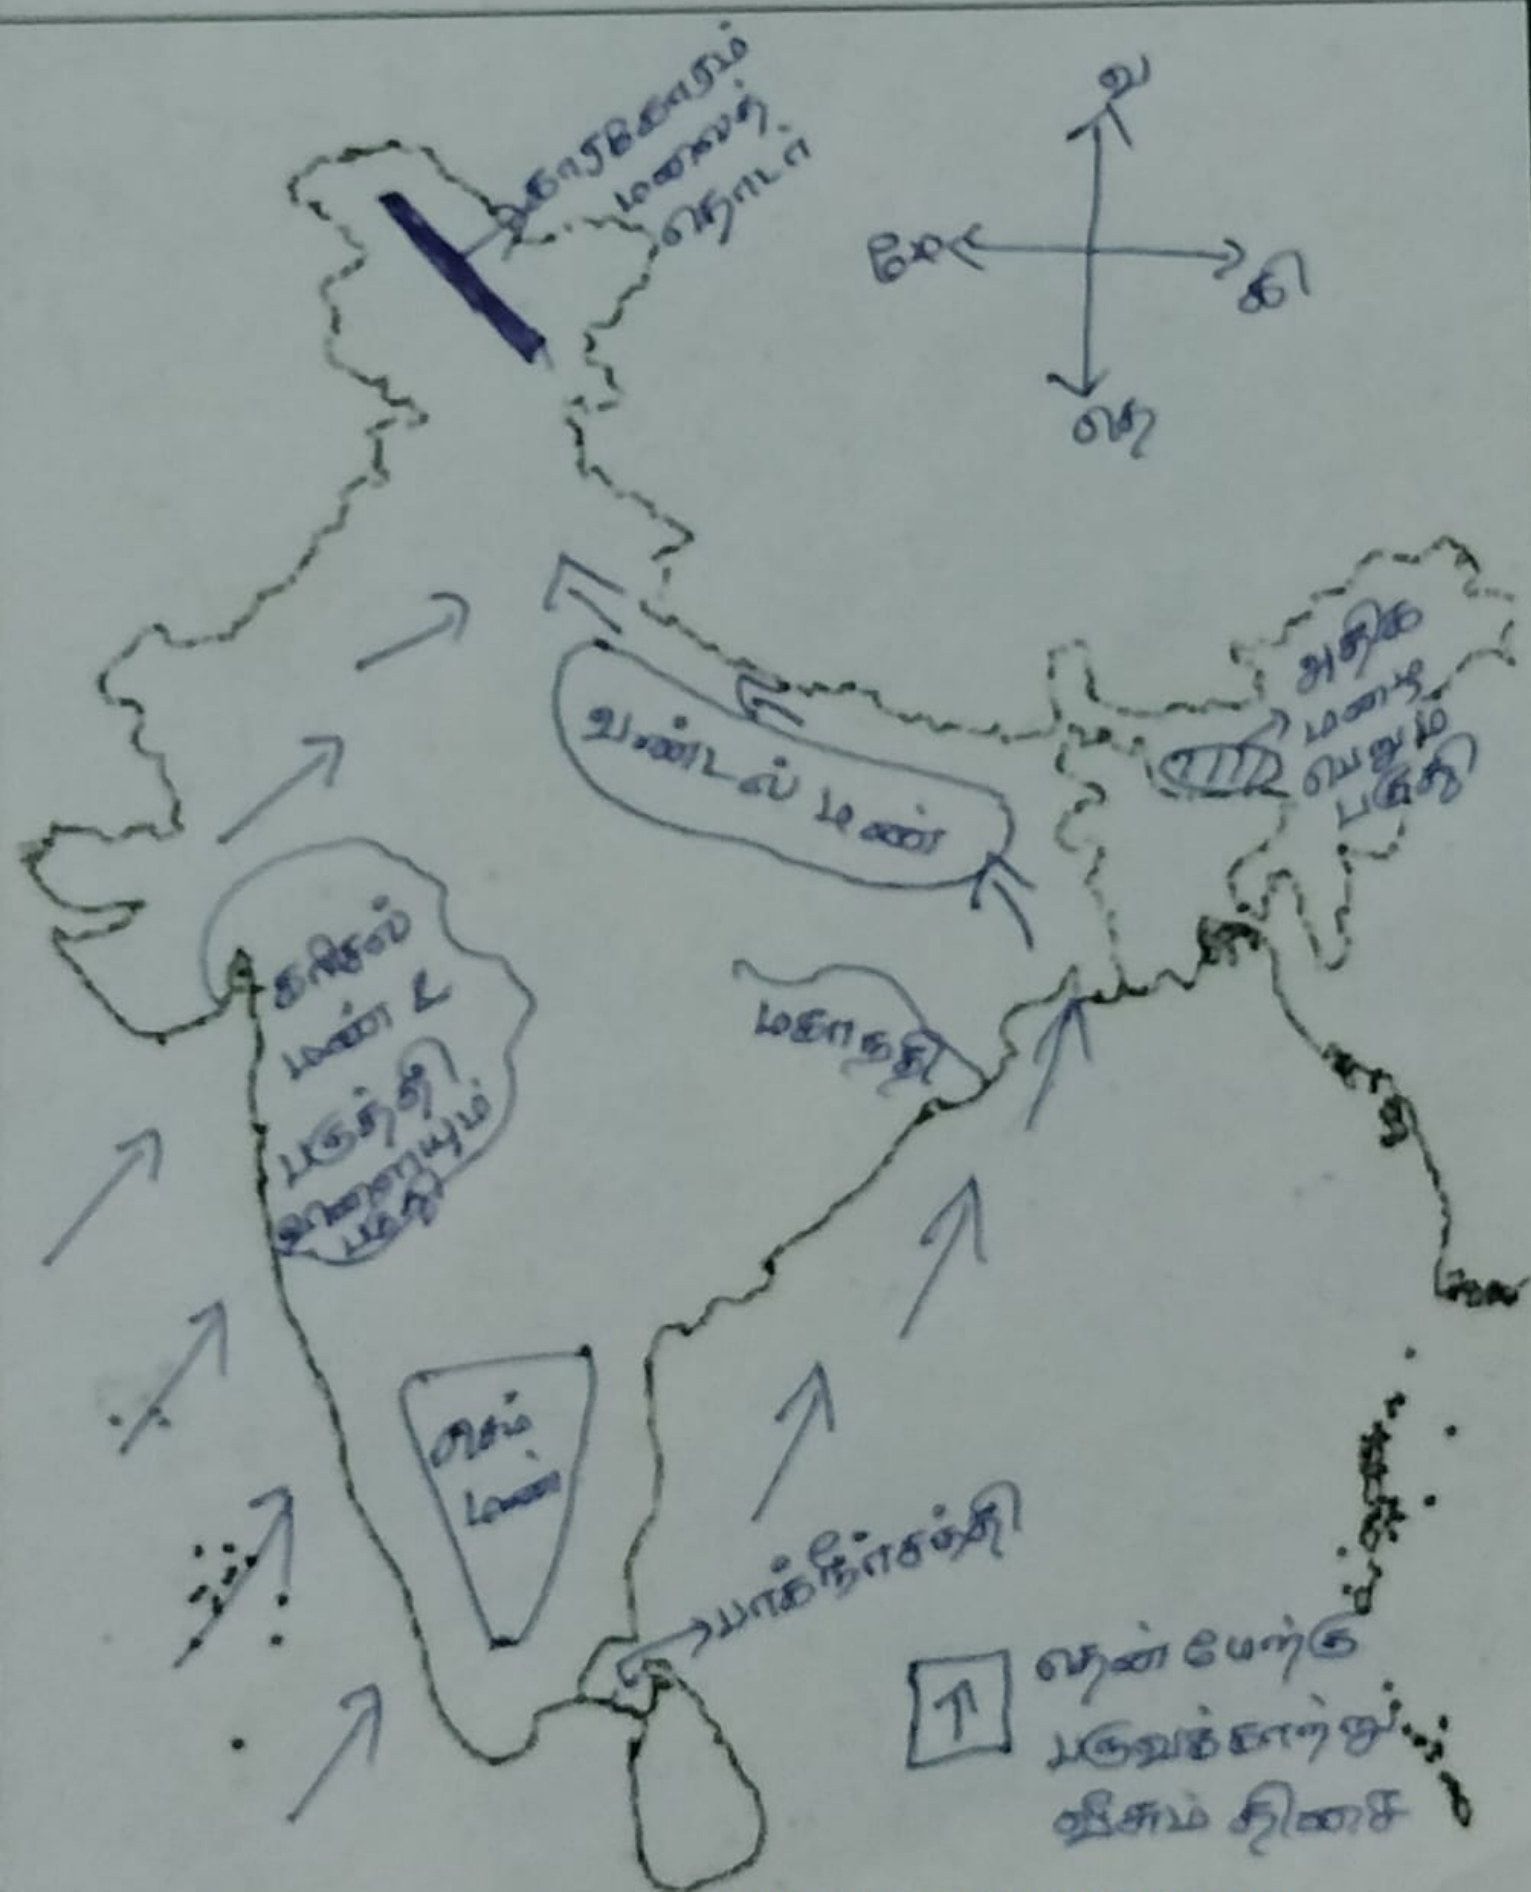 காரகோரம்
மலைத்
தொடர்
வ
மே
கி
தெ
அதிக
மழை
பெறும்
பகுதி
வண்டல் மண்
கரிசல்
மண் &
பருத்தி
விளையும்
பகுதி
மகாநதி
செம்
மண்
பாக்நீர்சந்தி
தென் மேற்கு
பருவக்காற்று
வீசும் திசை